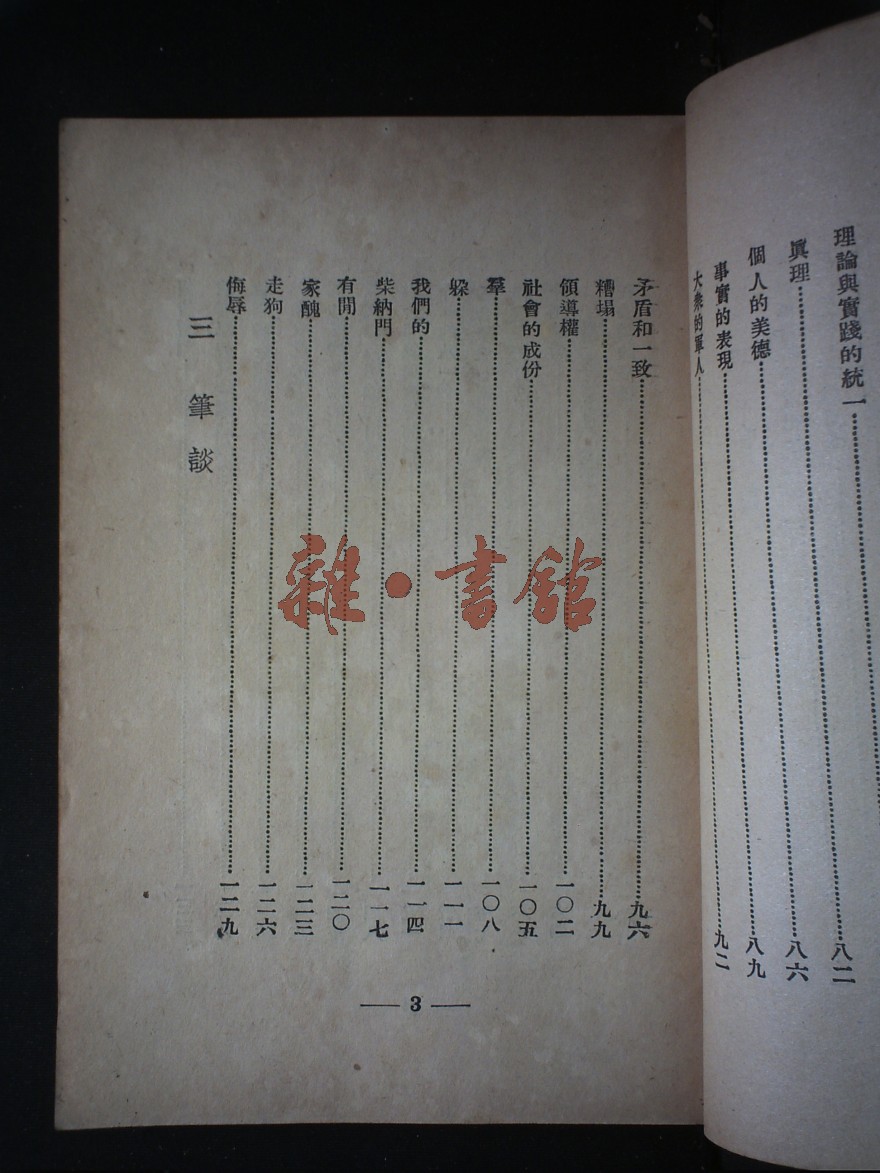 理論與實踐的統一……八二
眞理……八六
個人的美德……八九
事實的表現……九二
大衆的軍人……
矛盾和一致……九六
糟塌……九九
領導權……一〇二
社會的成份……一〇五
羣……一〇八
躲……一一一
我們的……一一四
柴納門……一一七
有閒……一二〇
家醜……一二三
走狗……一二六
侮辱……一二九
三 筆談
3
雜·書館